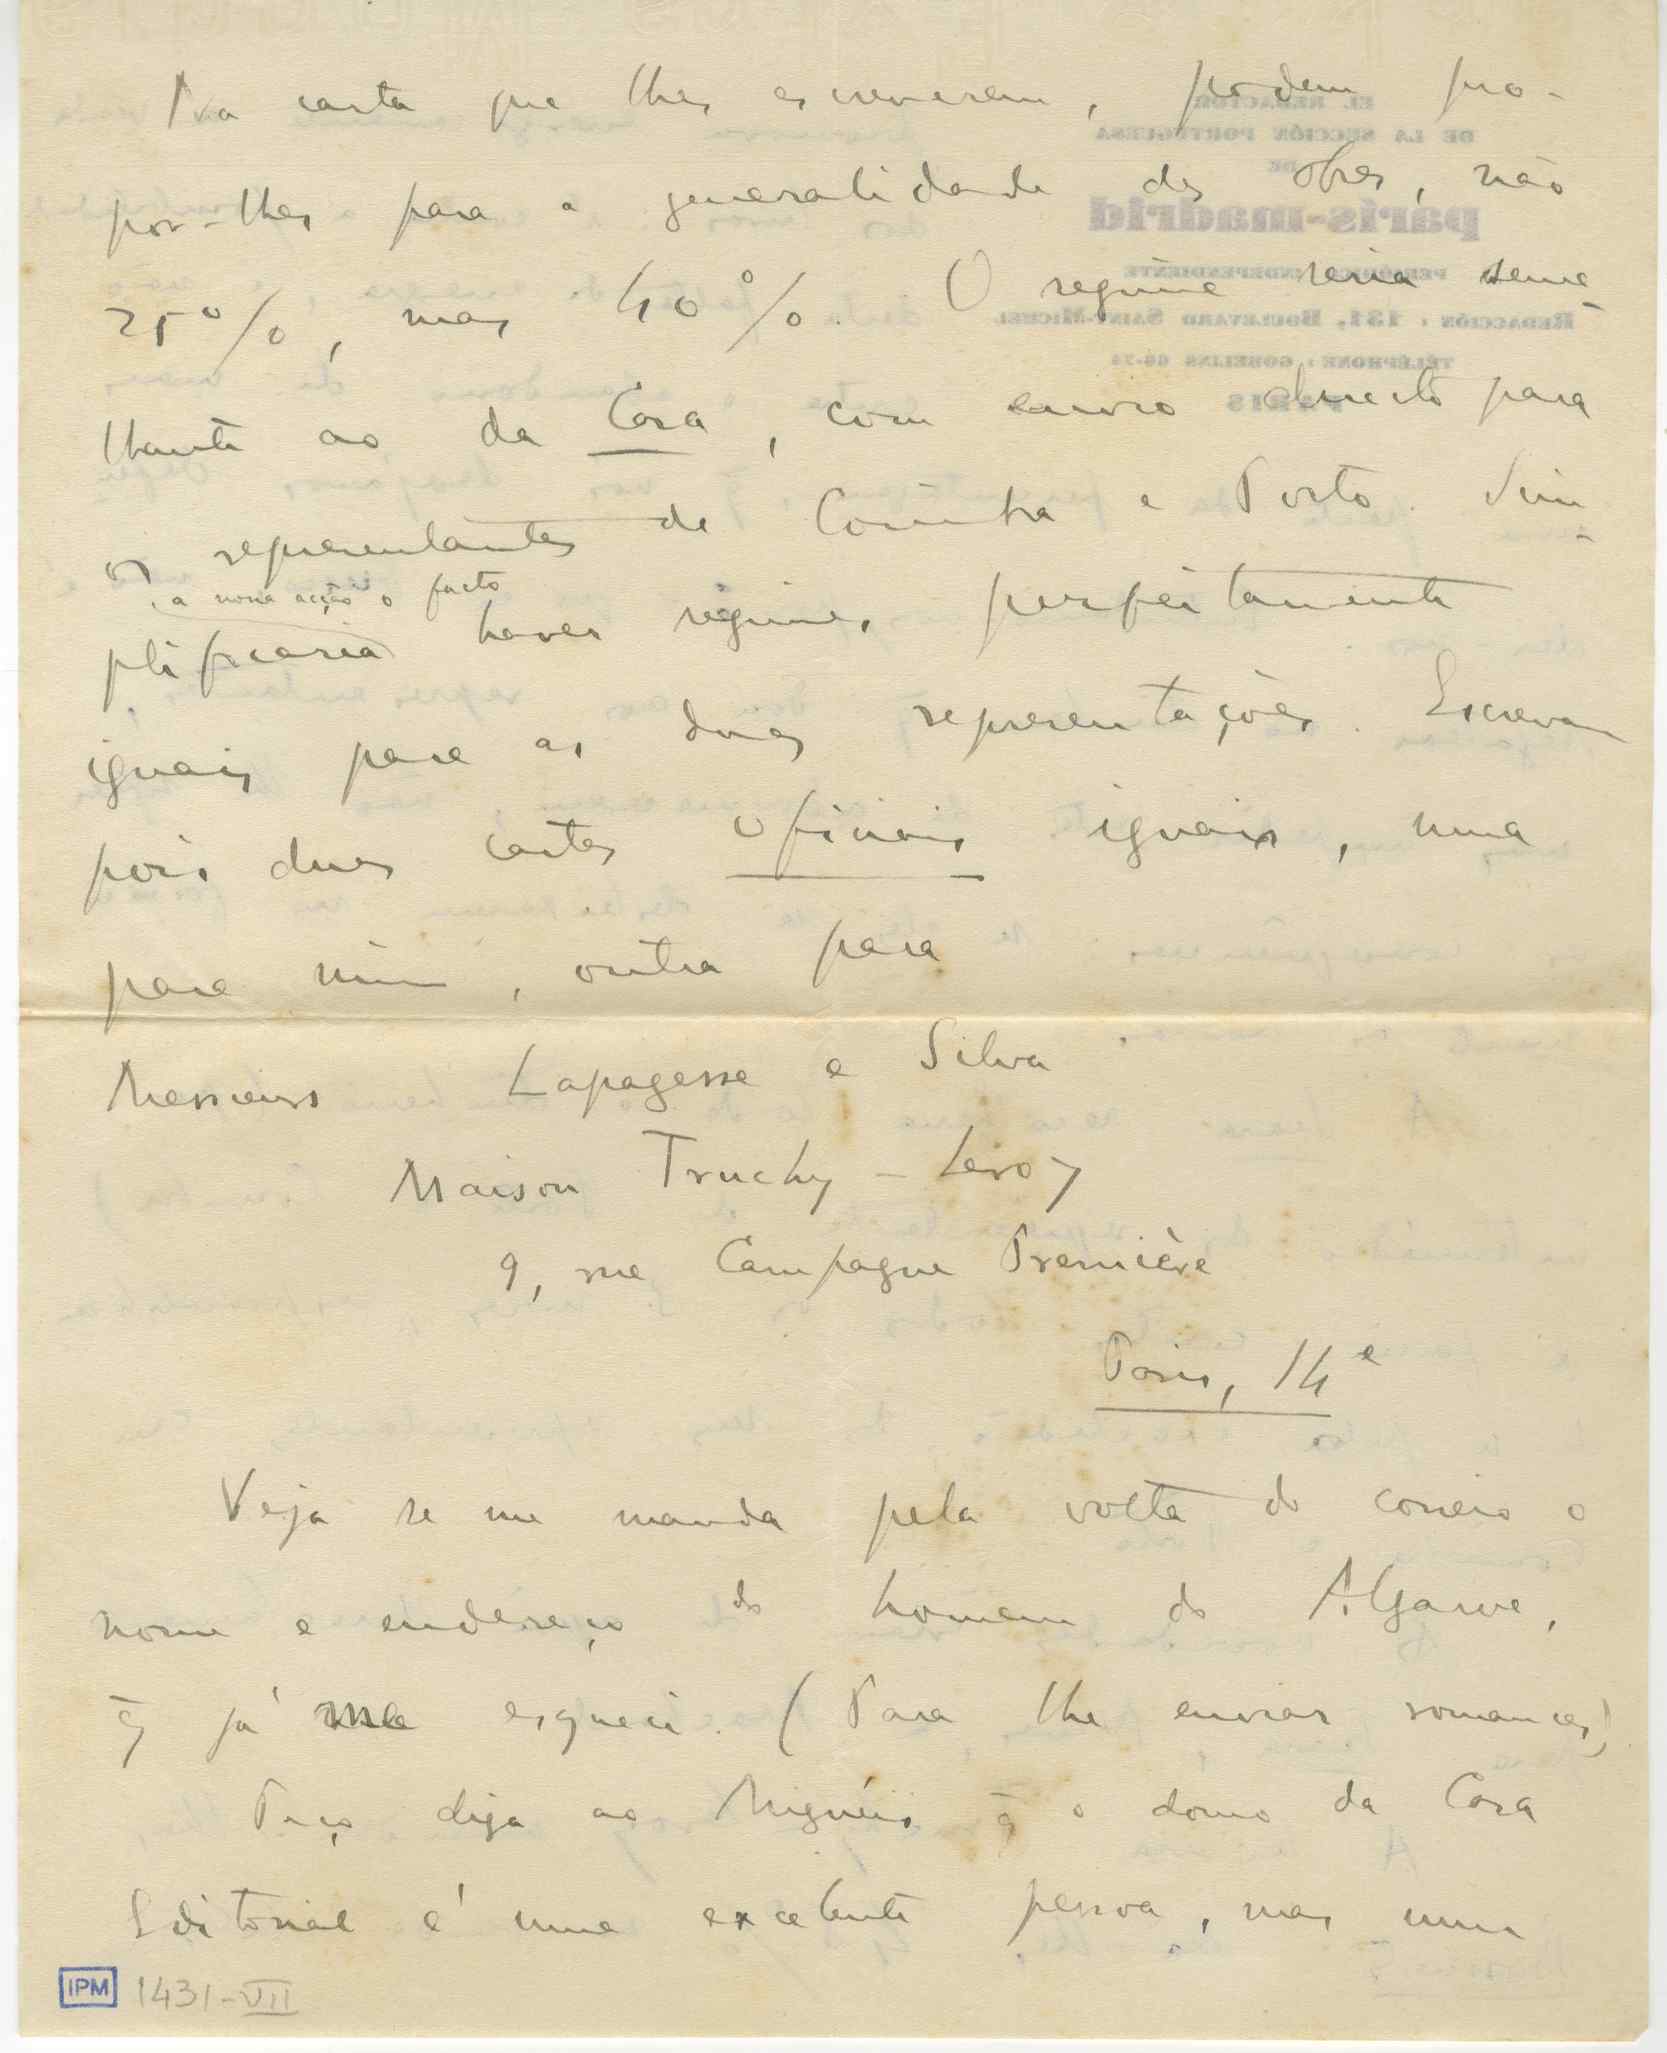 Na carta que lhes escreverem, podem pro-
por-lhes para a generalidade das obras, não
25%, mas 40%. O regime seria seme-
lhante ao da Casa, com envio directo para
os representantes de Coimbra e Porto. Sim-
a nossa acção o facto
plificaria haver regimes perfeitamente
iguais para as duas representações. Escrevam
pois duas cartas oficiais iguais, uma
para mim, outra para
Messieurs Lapagesse e Silva
Maison Truchy-Leroy
9, rue Campagne Première
Paris, 14e
Veja se me manda pela volta do correio o
nome e endereço do homem do Algarve,
q̄ já me esqueci. (Para lhe enviar romances)
Peço diga ao Miguéis q̄ o dono da Casa
Editorial é uma excelente pessoa, mas uma
IPM 1431-VII
EL REDACTOR
DE LA SECCIÓN PORTUGUESA
DE
paris-madrid
PERIÓDICO INDEPENDIENTE
REDACCIÓN : 131, BOULEVARD SAINT-MICHEL
TÉLÉPHONE : GOBELINS
PARIS